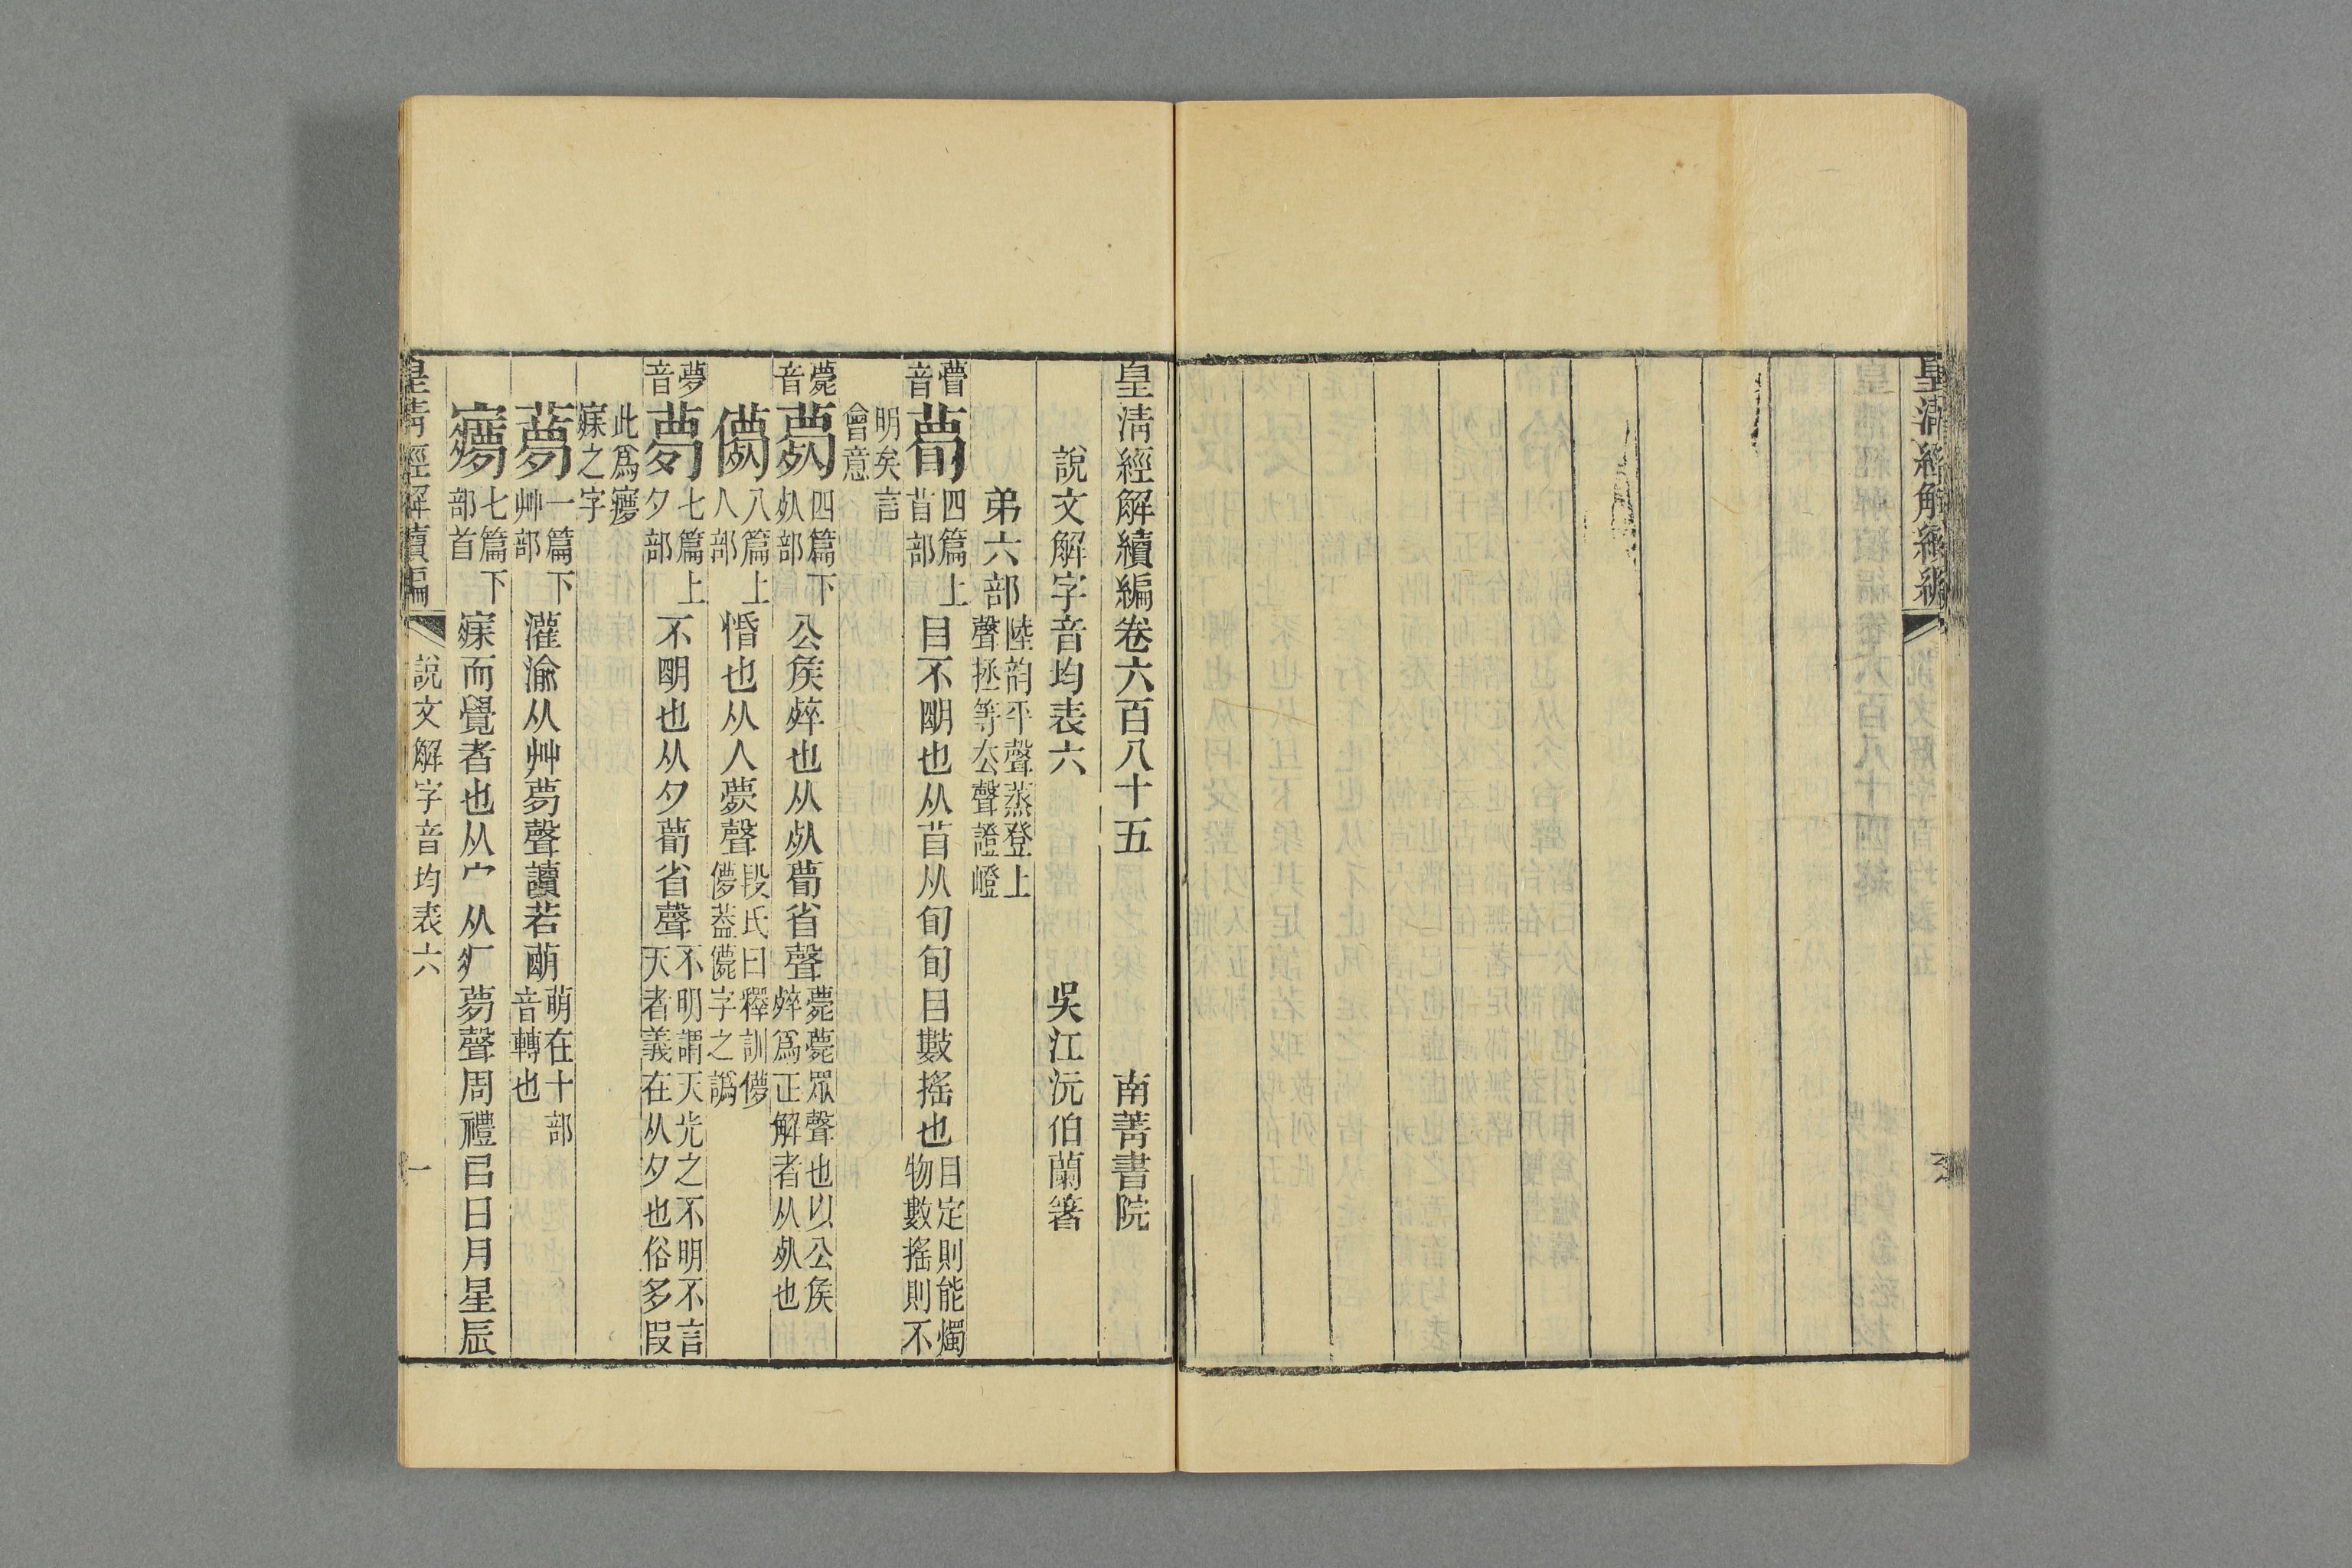 皇清經解續編卷六百八十五 南菁書院
說文解字音均表六 吳江沅伯蘭箸
弟六部 陸韵平聲蒸登上聲拯等厺聲證嶝
瞢音 瞢 四篇上𥄕部 目不朙也从𥄕从旬旬目數搖也 目定則能燭物數搖則不
明矣言會意
薨音 薨 四篇下𣦸部 公矦𣨛也从𣦸瞢省聲 薨薨眾聲也以公矦𣨛爲正解者从𣦸也
儚 八篇上人部 惛也从人薨聲 段氏曰釋訓儚儚葢儚字之譌
夢音 夢 七篇上夕部 不朙也从夕瞢省聲 不明謂天光之不明不言天者義在从夕也俗多叚
此爲㝱寐之字
夢 一篇下艸部 灌渝从艸夢聲讀若萌 萌在十部音轉也
㝱 七篇下部首 寐而覺者也从宀从疒夢聲周禮㠯日月星辰
皇清經解續編 說文解字音均表六 一